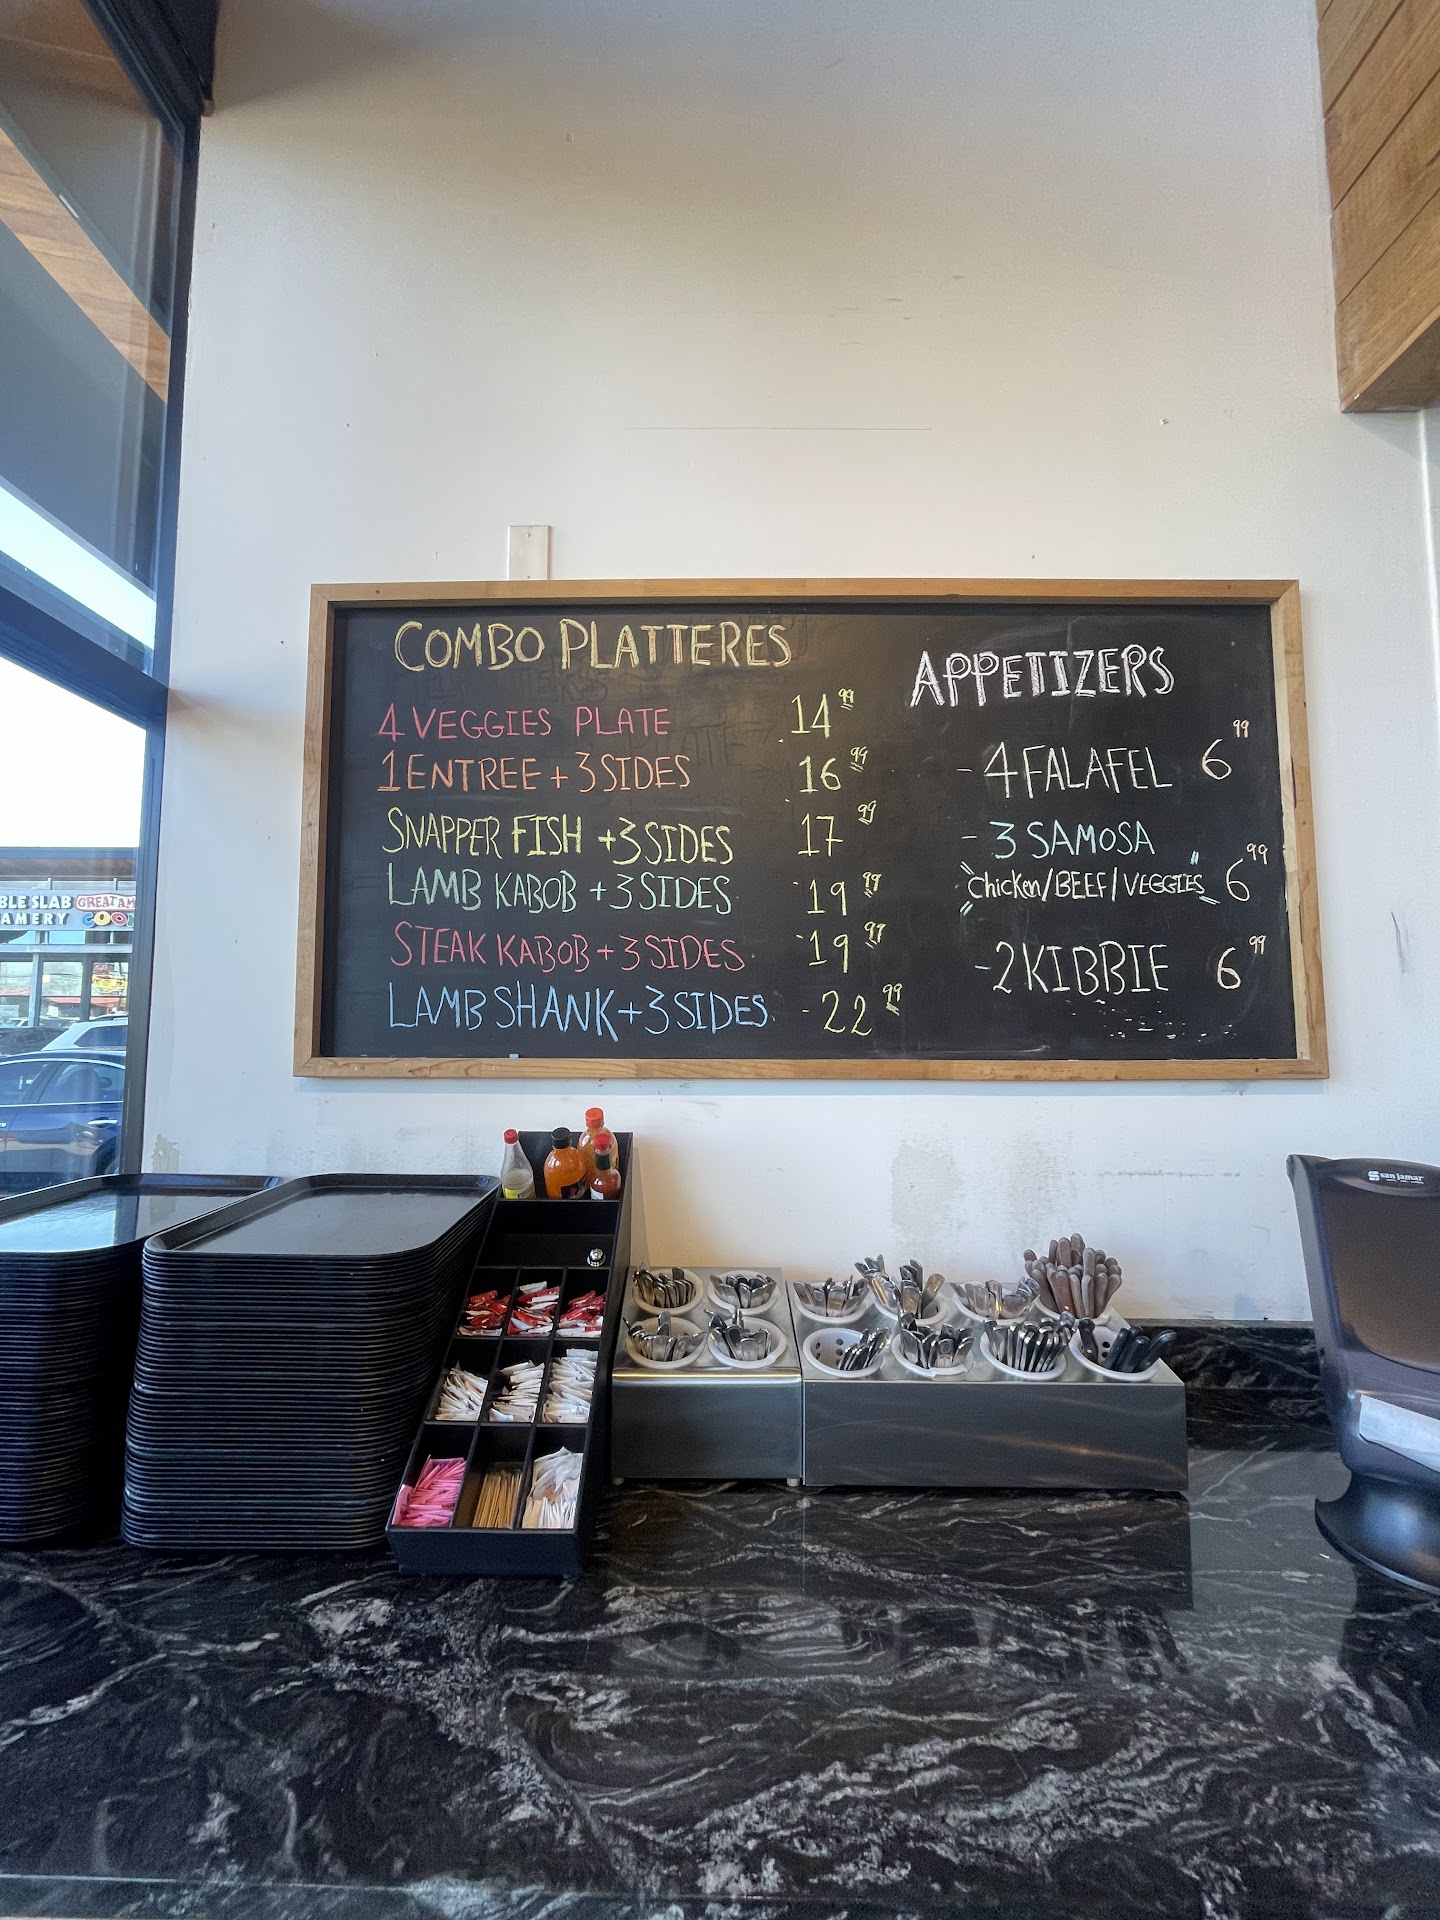 COMBO PLATTERES
4 VEGGIES PLATE 14 99
1 ENTREE + 3 SIDES 16 99
SNAPPER FISH + 3 SIDES 17 99
LAMB KABOB + 3 SIDES 19 99
STEAK KABOB + 3 SIDES 19 99
LAMB SHANK + 3 SIDES 22 99
APPETIZERS
- 4 FALAFEL 6 99
- 3 SAMOSA
Chicken/BEEF/VEGGIES 6 99
- 2 KIBBIE 6 99
BLE SLAB
AMERY
GREAT AM
COO
san jamar